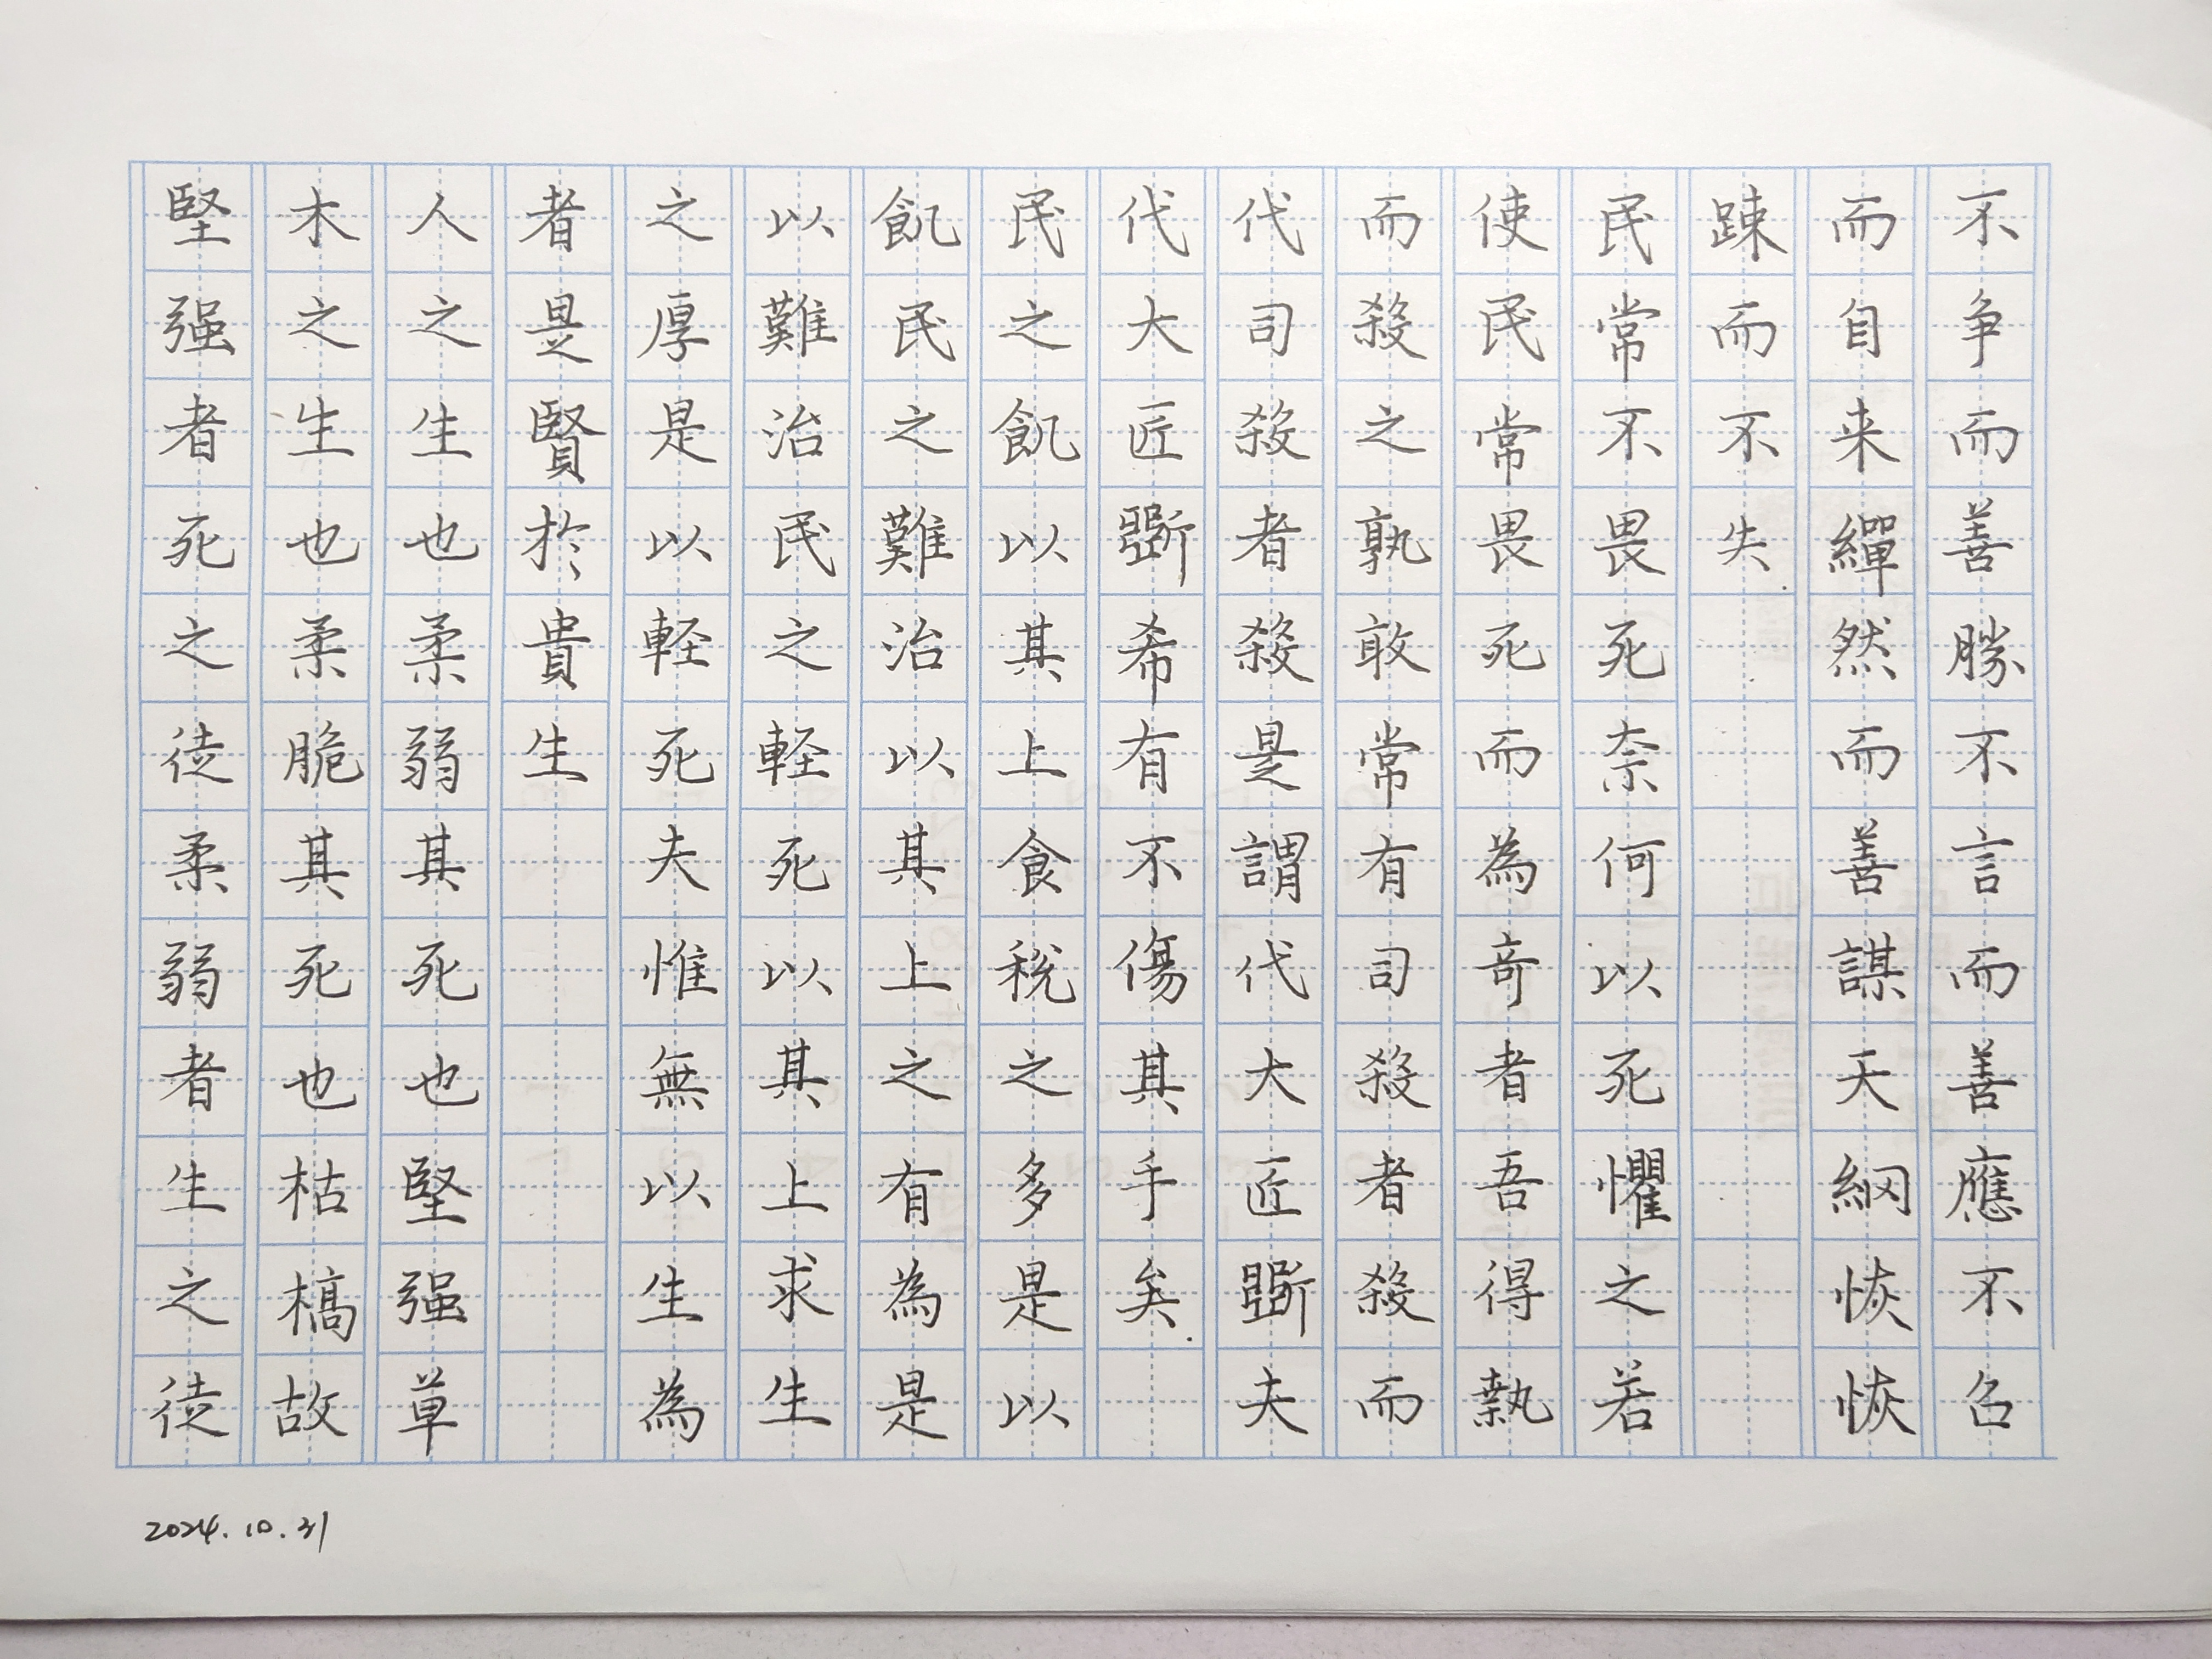 不争而善勝不言而善應不召
而自来繟然而善謀天網恢恢
踈而不失
民常不畏死奈何以死懼之若
使民常畏死而為奇者吾得執
而殺之孰敢常有司殺者殺而
代司殺者殺是謂代大匠斲夫
代大匠斲希有不傷其手矣
民之飢以其上食税之多是以
飢民之難治以其上之有為是
以難治民之軽死以其上求生
之厚是以軽死夫惟無以生為
者是賢於貴生
人之生也柔弱其死也堅强草
木之生也柔脆其死也枯槁故
堅强者死之徒柔弱者生之徒
2024.10.31